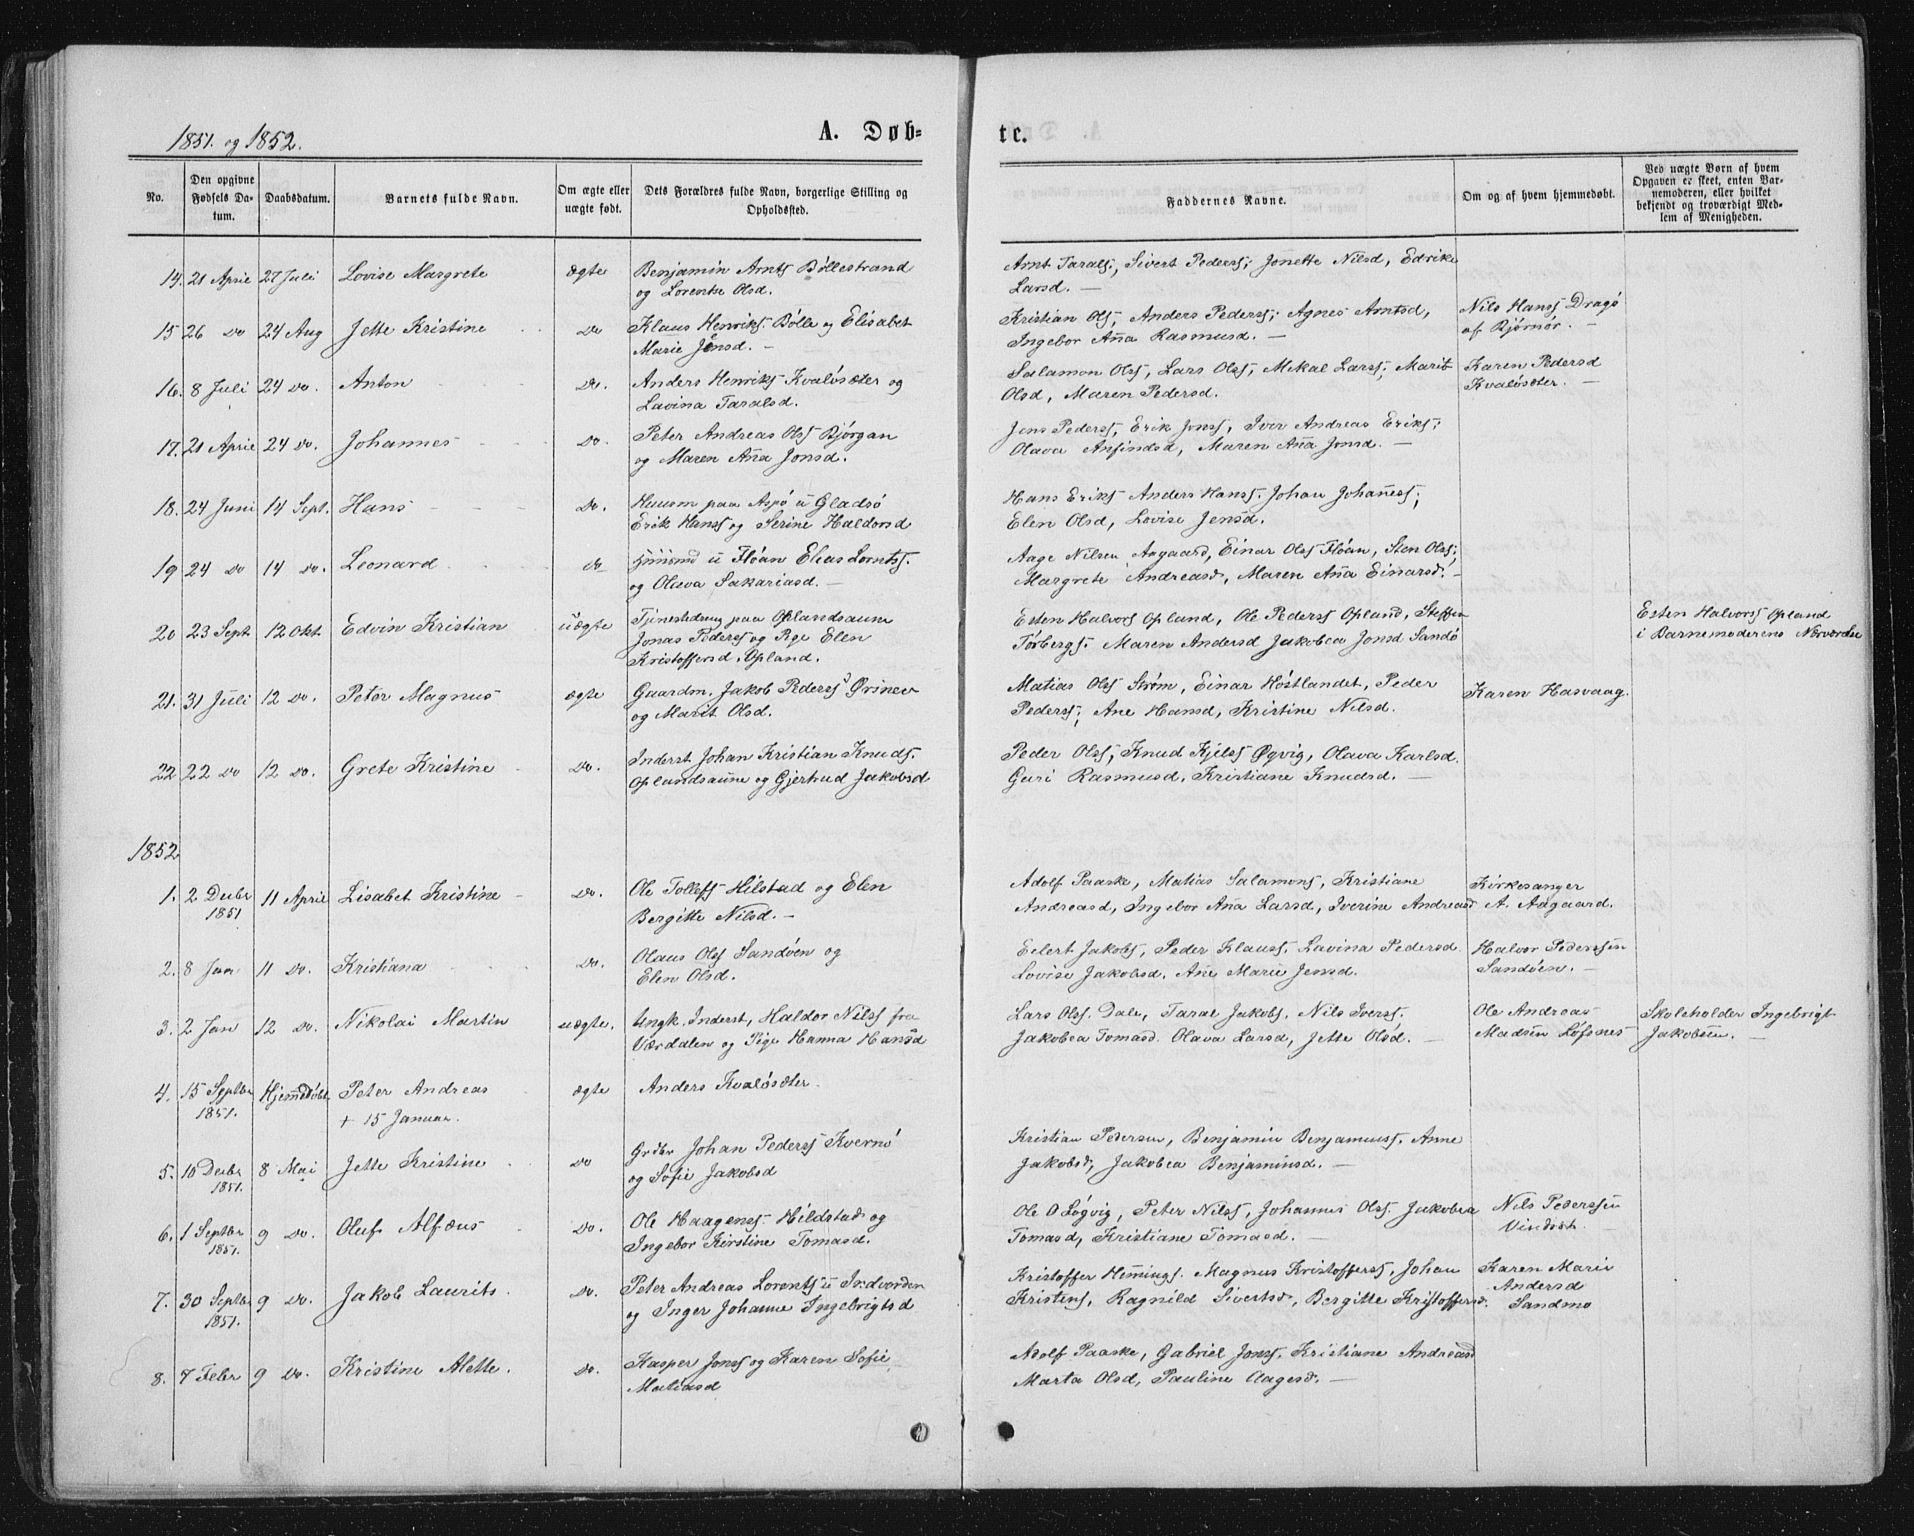 1851. og 1852.
A. Døb-
te.
No.
Den opgivne Fødsels Datum.
Daabsdatum.
Barnets fulde Navn.
Om ægte eller uægte født.
Dets Forældres fulde Navn, borgerlige Stilling og Opholdssted.
Faddernes Navne.
Om og af hvem hjemmedøbt.
Ved uægte Børn af hvem Opgaven er skeet, enten Barnemoderen, eller hvilket bekjendt og troværdigt Medlem af Menigheden.
14. 21 April 27 Juli Lovise Margrete ægte Benjamin Arnts Bøllestrand
og Lorentse Olsd.
Arnt Tarals, Sivert Peders; Jonette Nilsd, Edrike
Larsd. —
15 26 do 24 Aug Jette Kristine do Klaus Henriks. Bølle og Elisabet
Marie Jensd. —
Kristian Ols, Anders Peders; Agnes Arntsd,
Ingebor Aña Rasmusd. —
Nils Hans Dragö
af Bjørnør. —
16. 8 Juli 24 do. Anton do. Anders Henriks Kvaløsæter og
Lavina Taralsd.
Salamon Ols, Lars Ols, Mekal Lars, Marit
Olsd, Maren Pedersd.
Karen Pedersd
Kvaløsæter. —
17. 21 April 24 do. Johannes do. Peter Andreas Ols Bjørgan
og Maren Aña Jonsd.
Jens Peders, Erik Jons, Iver Andreas Eriks;
Olava Anfindsd, Maren Aña Jonsd. —
18. 24 Juni 14 Sept. Hans do. Huusm paa Aspø u Gladsö
Erik Hans og Serine Haldorsd
Hans Eriks Anders Hans. Johan Johañes;
Elen Olsd, Lovise Jensd.
19 24 do 14 do. Leonard do u Flöan Elias Lornts.
og Olava Sakariasd. —
Aage Nilsen Aagaard, Einar Ols Flöan, Sten Ols;
Margrete Andreasd, Maren Aña Einarsd. —
20 23 Sept 12 Okt Edvin Kristian uægte Tjenestedreng paa Oplandsaune
Jonas Peders og Pige Elen
Kristoffersd. Opland.
Esten Halvors Opland, Ole Peders Opland, Steffen
Torbergs. Maren Andersd Jakobea Jonsd Sandö
Esten Halvors Opland
i Barnemoderens Nærværelse
21. 31 Juli 12 do. Peter Magnus ægte Gaardm. Jakob Peders Ørinev
og Marit Olsd.
Matias Ols Strøm, Einar Höstlandet, Peder
Peders; Ane Hansd, Kristine Nilsd.
Karen Hasvaag.
22 22 do 12 do. Grete Kristine do. Inderst Johan Kristian Knuds.
Oplandsaune og Gjertrud Jakobsd
Peder Ols, Knud Kjels Øqvig, Olava Karlsd.
Guri Rasmusd, Kristiane Knudsd. —
1852
1. 2 Decbr 1851 11 April Lisabet Kristine do. Ole Tollefs Hilstad og Elen
Bergitte Nilsd. —
Adolf Paaske, Matias Salamons, Kristiane
Andreasd, Ingebor Aña Larsd, Iverine Andreasd
Kirkesanger
A. Aagaard.
2. 8 Jan 11 do. Kristiana do. Olaus Ols Sandöen og
Elen Olsd.
Eilert Jakobs, Peder Klaus. Lavina Pedersd
Lovise Jakobsd. Ane Marie Jensd.
Halvor Pederssen
Sandöen. —
3. 2 Jan 12 do. Nikolai Martin uægte. Ungk. Inderst, Haldor Nils fra
Værdalen og Pige Hanna Hansd
Lars Ols. Dale, Taral Jakobs. Nils Ivers.
Jakobea Tomasd. Olava Larsd, Jette Olsd. —
Ole Andreas
Madsen Löfsnes
Skoleholder Ingebrigt
Jakobsen. —
4. 15 Septbr 1851. Hjemmedöbt Peter Andreas
+ 15 Januar.
ægte Anders Kvalösæter.
5. 10 Decbr 1851. 8 Mai Jette Kristine do Grdbr Johan Peders Kvernö
og Sofie Jakobsd
Kristian Pedersen, Benjamin Benjamins. Anne
Jakobsd, Jakobea Benjaminsd. —
6. 1 Septbr 1851. 9 do. Oluf Alfæus do. Ole Haagens. Hildstad og
Ingebor Kirstine Tomasd.
Ole O Lögvig, Peter Nils, Johannes Ols. Jakobea
Tomasd, Kristiane Tomasd. —
Nils Pederssen
7. 30 Septbr 1851. 9 do. Jakob Laurits. do. Peter Andreas Lorents u Indvorden
og Inger Johanne Ingebrigtsd
Kristoffer Hemings. Magnus Kristoffers, Johan
Kristens, Ragnild Sivertsd, Bergitte Kristoffersd.
Karen Marie
Andersd
Sandmo
8. 7 Febr 9 do. Kristine Alette. do. Kasper Jons og Karen Sofie
Matiasd
Adolf Paaske, Gabriel Jons. Kristiane Andreasd
Marta Olsd, Pauline Aagesd. —